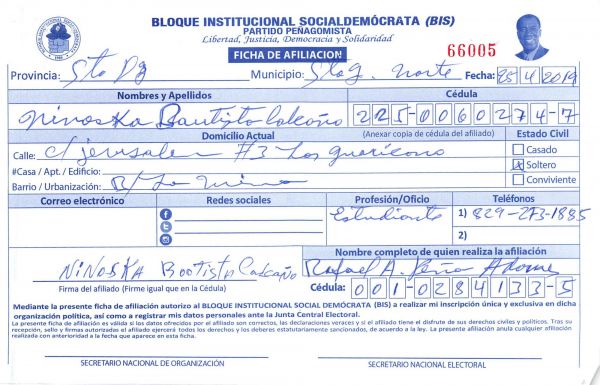 BLOQUE INSTITUCIONAL SOCIALDEMÓCRATA (BIS)
PARTIDO PEÑAGOMISTA
Libertad, Justicia, Democracia y Solidaridad
FICHA DE AFILIACION
66005
Provincia: Sto Dg Municipio: Sto g. norte Fecha: 25 4 2019
Nombres y Apellidos Cédula
Ninoska Bautista 225-0060274-7
Domicilio Actual (Anexar copia de cédula del afiliado) Estado Civil
Calle: C/ Jerusalen #3 Los guaricano Casado
#Casa / Apt. / Edificio: Soltero
Barrio / Urbanización: B/ La mina Conviviente
Correo electrónico Redes sociales Profesión/Oficio Teléfonos
Estudiante 1) 829-273-1885
2)
Nombre completo de quien realiza la afiliación
NiNOSKA Bootista Rafael A. Peña
Firma del afiliado (Firme igual que en la Cédula) Cédula: 001-0284133-5
Mediante la presente ficha de afiliación autorizo al BLOQUE INSTITUCIONAL SOCIAL DEMÓCRATA (BIS) a realizar mi inscripción única y exclusiva en dicha
organización política, así como a registrar mis datos personales ante la Junta Central Electoral.
La presente ficha de afiliación es válida si los datos ofrecidos por el afiliado son correctos, las declaraciones veraces y si el afiliado tiene el disfrute de sus derechos civiles y políticos. Tras su
recepción, sello y firmas autorizadas el afiliado ejercerá todos los derechos y los deberes estatutariamente sancionados, de acuerdo a la ley. La presente afiliación anula cualquier afiliación
realizada con anterioridad a la fecha que aparece en esta ficha.
SECRETARIO NACIONAL DE ORGANIZACIÓN SECRETARIO NACIONAL ELECTORAL